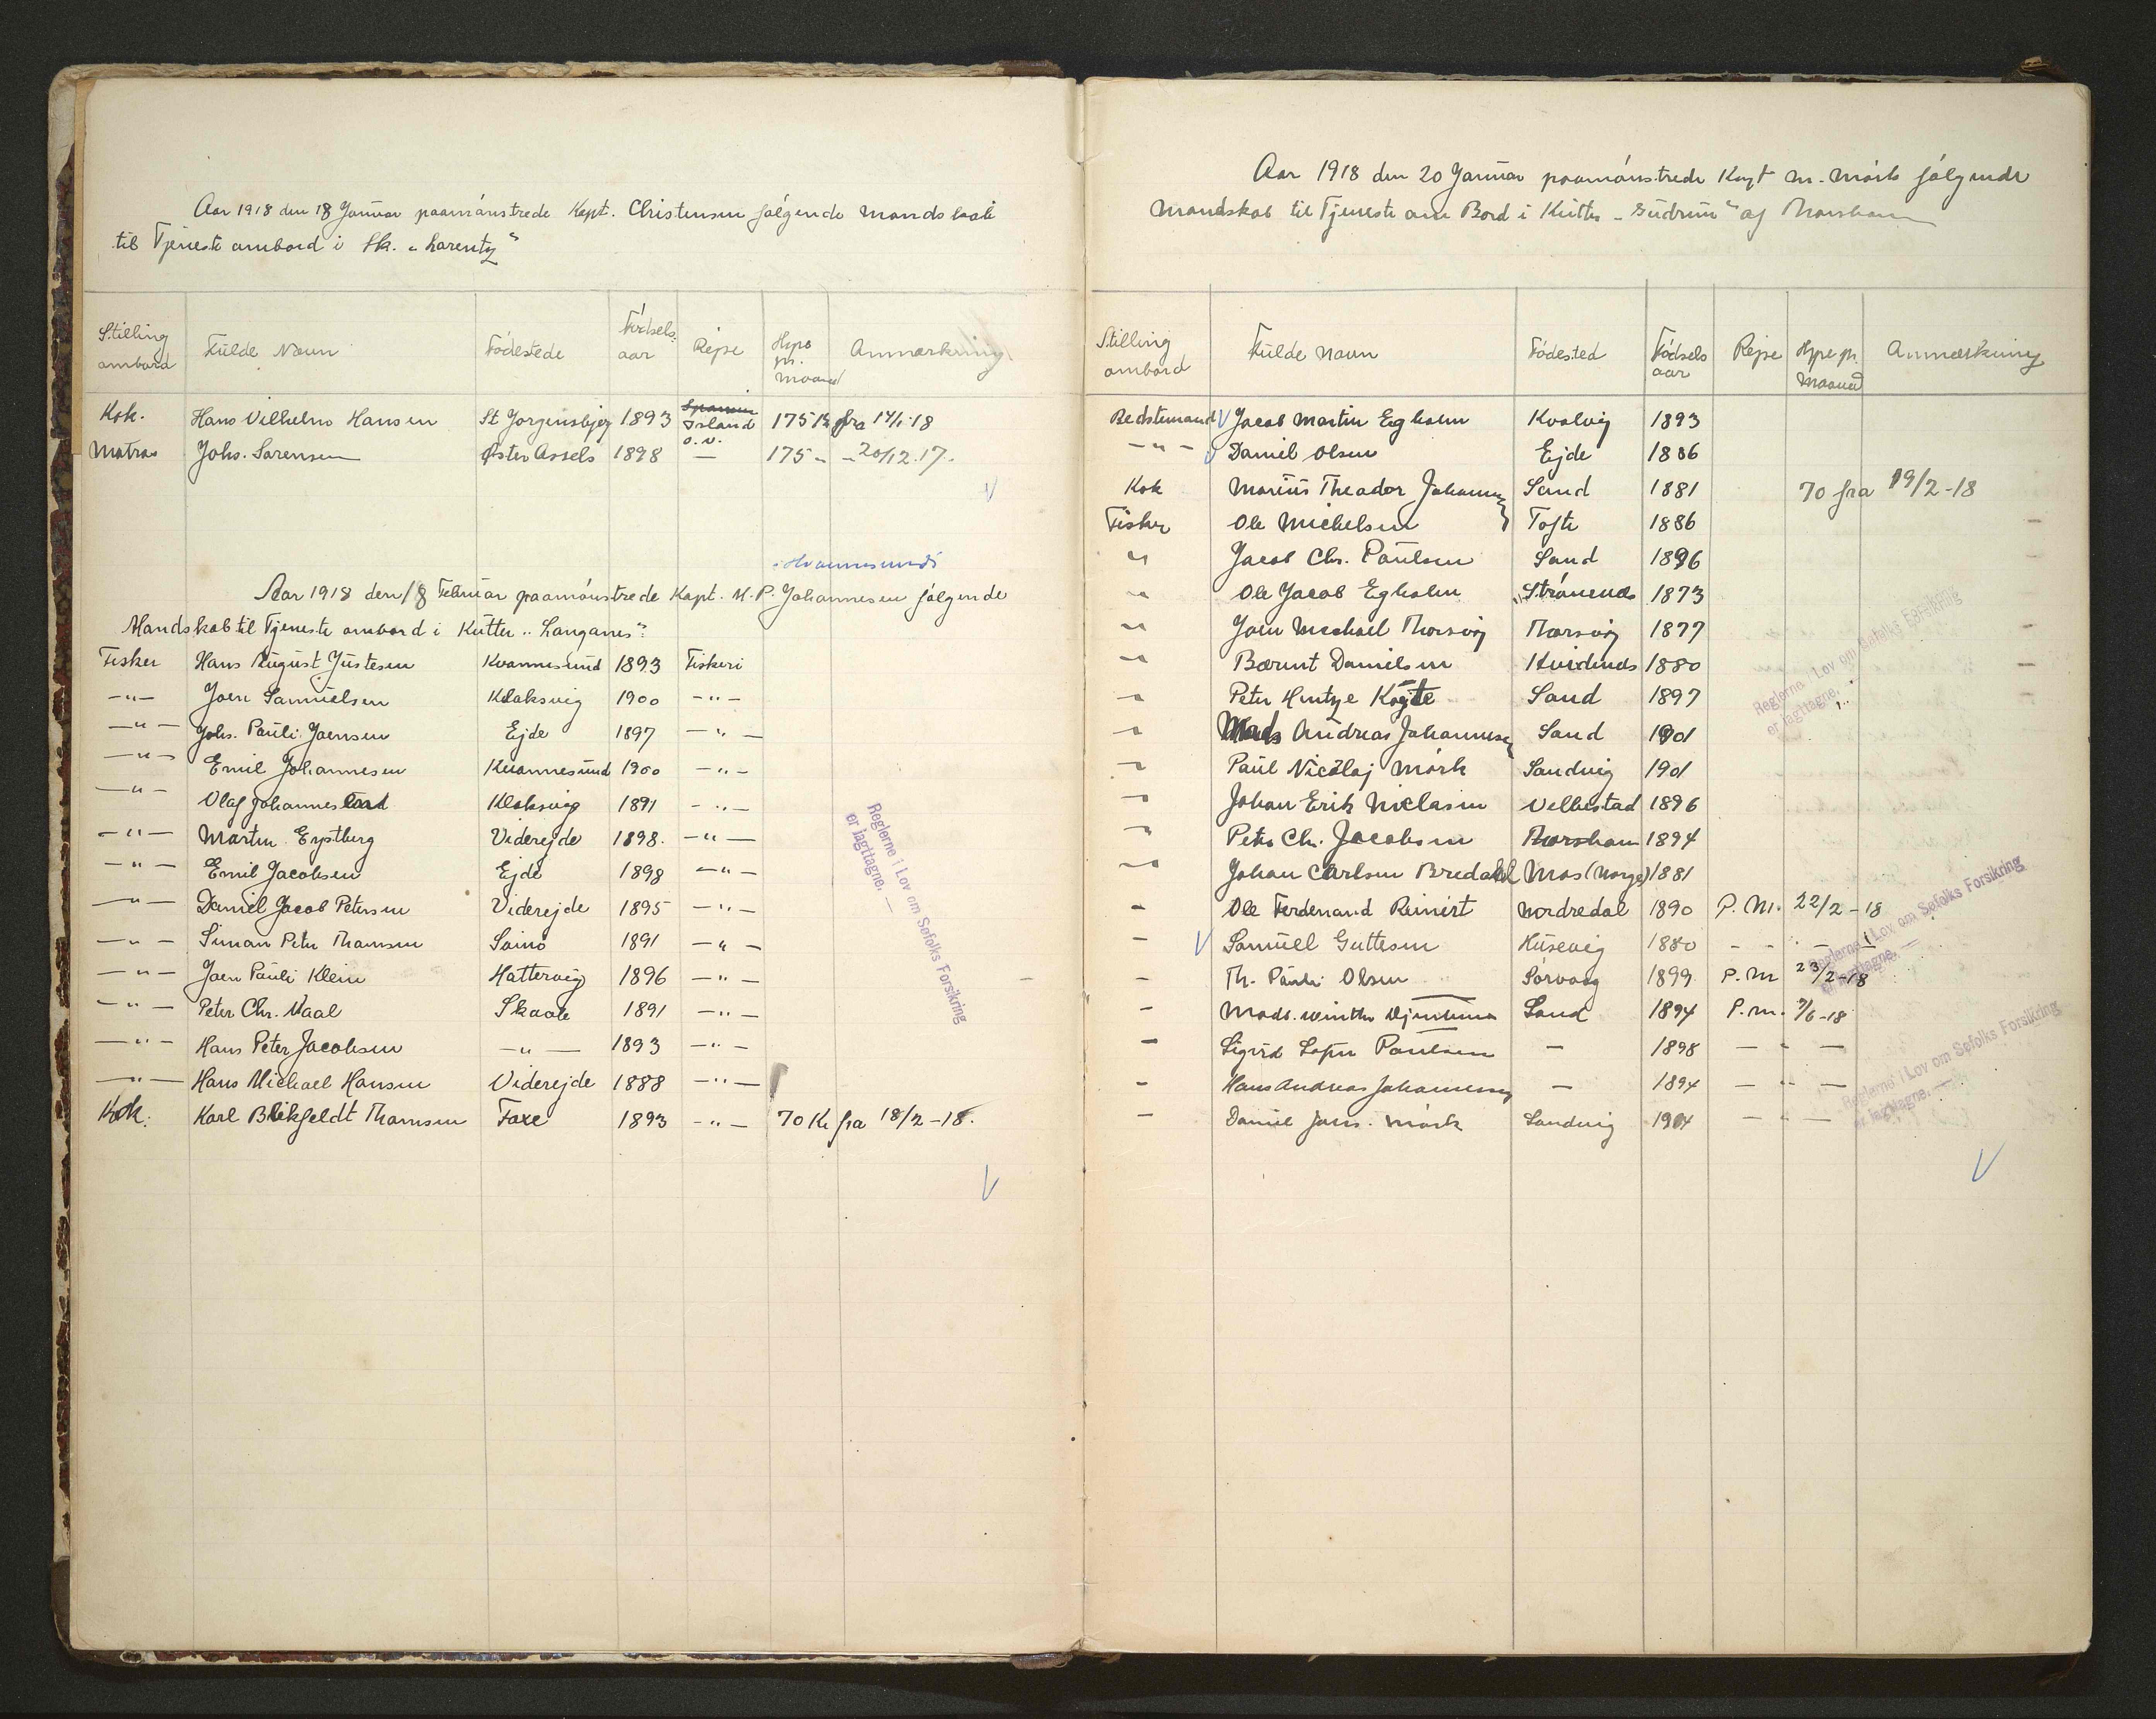 Aar 1918 den 18 Januar paamónstrede Kapt. Christensen fólgende Mandskab
til Tjeneste ombord i Sk. "Larentz"
Stilling ombord Fulde Navn Fódestede Fódsels aar Rejse Hyre pr. Maaned Anmærkning
Kok. Hans Vilhelm Hansen St Jorgensbjerg 1893 Island o.v. 175 Kr fra 14/1-18
Matros Johs. Sørensen Øster Assels 1898 — 175 - - 20/12.17.
Aar 1918 den 18 Februar paamónstrede Kapt. M. P. Johannesen fólgende
Mandskab til Tjeneste ombord i Kutter "Langanes":
Fisker Hans August Justesen Kvannesund 1893 Fiskeri
—"— Joen Samuelsen Klaksvig 1900 —"—
—"— Johs. Pauli Joensen Ejde 1897 —"—
—"— Emil Johannesen Kvannesund 1900 —"—
—"— Olaf Johannes Klaksvig 1891 —"—
—"— Martin Viderejde 1898. —"—
—"— Emil Jacobsen Ejde 1898 —"—
—"— Daniel Jacob Petersen Viderejde 1895 —"—
—"— Simon Peter Thomsen 1891 —"—
—"— Joen Pauli Klein Hattervig 1896 —"—
—"— Peter Chr. Kaal Skaale 1891 —"—
—"— Hans Peter Jacobsen —"— 1893 —"—
—"— Hans Michael Hansen Viderejde 1888 —"—
Kok. Karl Blikfeldt Thomsen Faxe 1893 —"— 70 Kr fra 18/2-18.
Reglerne i Lov om Søfolks Forsikring
er iagttagne. —
Aar 1918 den 20 Januar paamónstrede Kapt M. Mórk fólgende
Mandskab til Tjeneste om Bord i Kutter "Gudrun" af Thorshavn
Stilling ombord Fulde Navn Fódested Fódsels aar Rejse Hyre pr. Maaned Anmærkning
Bedstemand Jacob Martin Egholm Kvalvig 1893
—"— Daniel Olsen Ejde 1886
Kok Marius Theodor Johannesen Sand 1881 70 fra 19/2-18
Fisker Ole Michelsen Tofte 1886
" Jacob Chr. Paulsen Sand 1896
" Ole Jacob Egholm Strómnæs 1873
" Joen Michael Thorsvig Thorsvig 1877
" Bærent Danielsen Hvidenæs 1880
" Peter Hentze Sand 1897
" Mads Andreas Johannesen Sand 1901
" Paul Nicolaj Mórk Sandvig 1901
" Johan Erik Niclasen Velbestad 1896
" Peter Chr. Jacobsen Thorshavn 1894
" Johan Carlsen Bredahl Mos (Norge) 1881
- Ole Ferdenand Reinert Nordredal 1890 P. M. 22/2-18
- Samuel Guttesen Husevig 1880 - - " — "
- Th. Pauli Olsen Sórvaag 1899 P. M 23/2-18
- Mads. Winther Djurhuus Sand 1894 P. M. 7/6-18
- Sigvd Sofus Poulsen — 1898 — " —
- Hans Andreas Johannesen — 1894 — " —
- Daniel Joen. Mórk Sandvig 1904 — " —
Reglerne i Lov om Søfolks Forsikring
er iagttagne. —
Reglerne i Lov om Søfolks Forsikring
er iagttagne. —
Reglerne i Lov om Søfolks Forsikring
er iagttagne. —